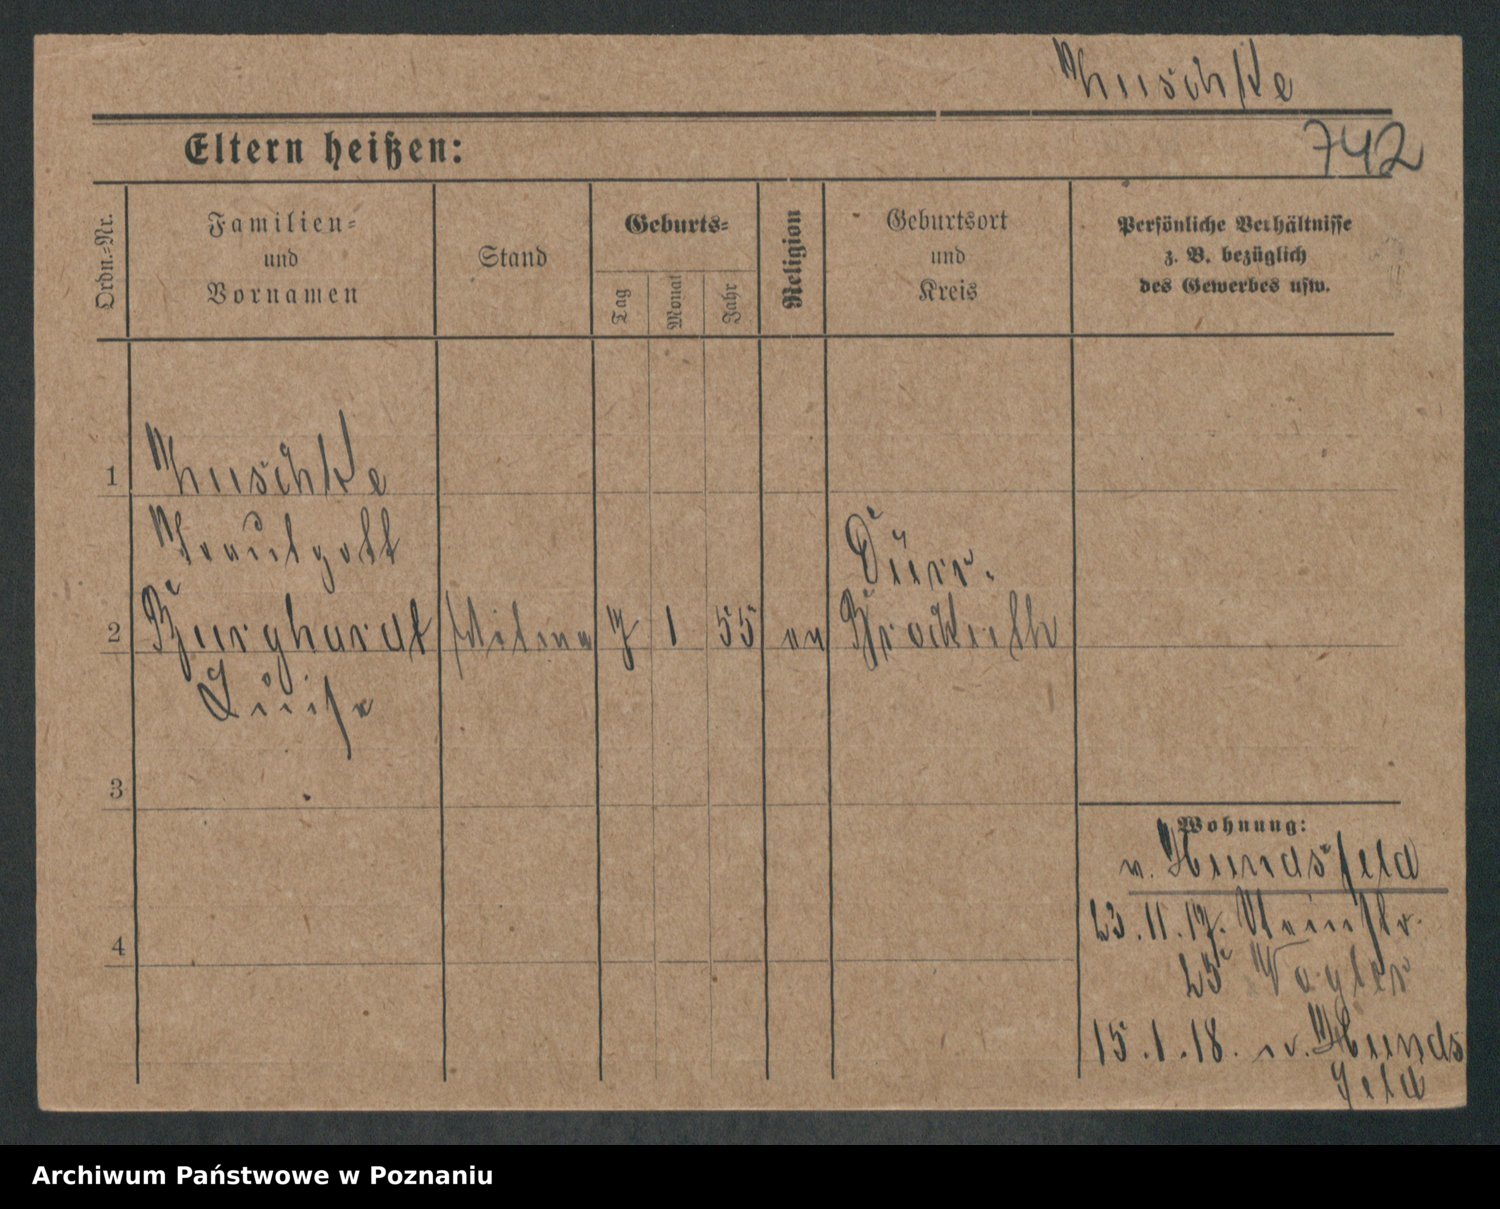 742
Eltern heißen:
Ordn.=Nr.
Familien=
und
Vornamen
Stand
Geburts=
Tag
Monat
Jahr
Religion
Geburtsort
und
Kreis
Persönliche Verhältnisse
z. B. bezüglich
des Gewerbes usw.
1
Traugott
2
Burghardt
7 1 55
ev
Dürr-
Luise
3
4
Wohnung:
v. Hundsfeld
23.11.17.
23 Vogler
15.1.18. n. Hunds
feld
Archiwum Państwowe w Poznaniu